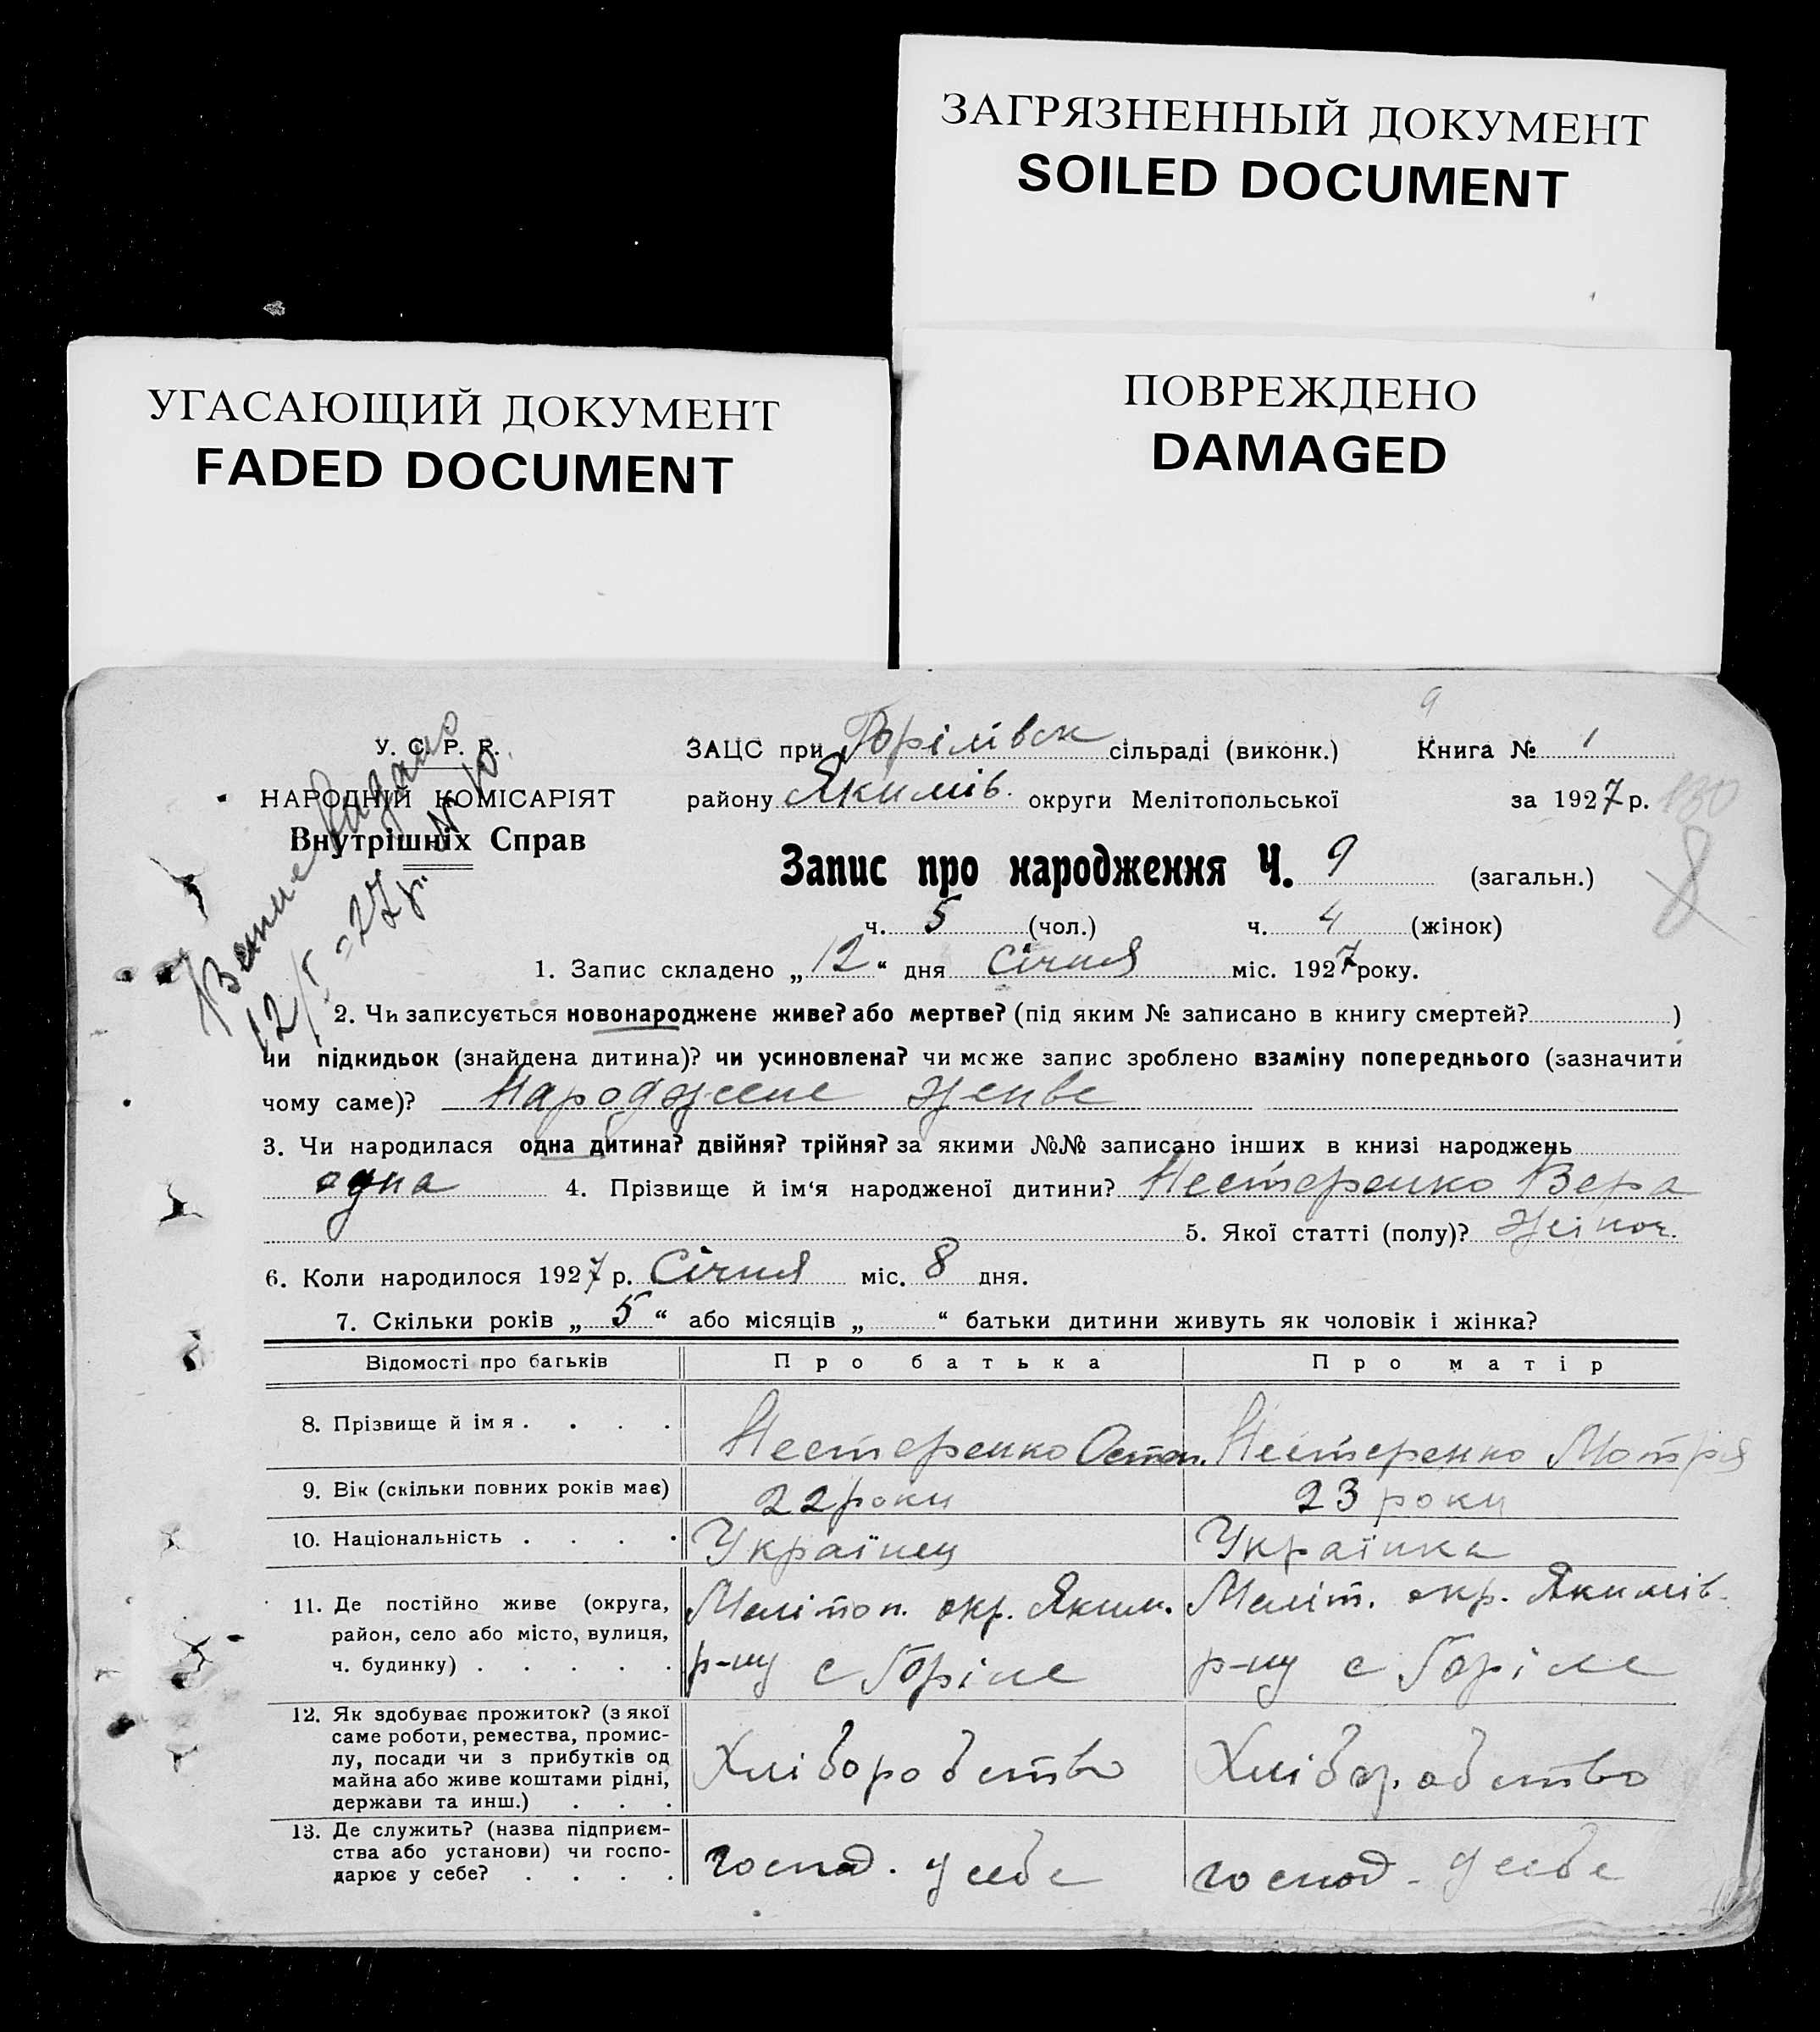 ЗАГРЯЗНЕННЫЙ ДОКУМЕНТ
SOILED DOCUMENT
УГАСАЮЩИЙ ДОКУМЕНТ
FADED DOCUMENT
ПОВРЕЖДЕНО
DAMAGED
9
У. С. Р. Р.
НАРОДНІЙ КОМІСАРІЯТ
Внутрішніх Справ
12/I-27 р.
ЗАЦС при Горілівск сільраді (виконк.) Книга № 1
району Якимів. округи Мелітопольської за 1927 р.
130
8
Запис про народження Ч. 9 (загальн.)
ч. 5 (чол.) ч. 4 (жінок)
1. Запис складено „12“ дня Січня міс. 1927 року.
2. Чи записується новонароджене живе? або мертве? (під яким № записано в книгу смертей? )
чи підкидьок (знайдена дитина)? чи усиновлена? чи може запис зроблено взаміну попереднього (зазначити
чому саме)? Народжене живе
3. Чи народилася одна дитина? двійня? трійня? за якими №№ записано інших в книзі народжень
одна 4. Прізвище й ім‘я народженої дитини? Нестеренко Вера
5. Якої статті (полу)? Жіноч.
6. Коли народилося 1927 р. Січня міс. 8 дня.
7. Скільки років „5“ або місяців „ “ батьки дитини живуть як чоловік і жінка?
Відомості про батьків Про батька Про матір
8. Прізвище й імя . . . . Нестеренко Остап. Нестеренко Мотря
9. Вік (скільки повних років має) 22 роки 23 роки
10. Національність . . . . Українец Українка
11. Де постійно живе (округа, Меліtоп. окр. Яким. Меліт. окр. Якимів.
район, село або місто, вулиця,
ч. будинку) . . . . . р-ну с Горіле р-ну с Горіле
12. Як здобуває прожиток? (з якої
саме роботи, ремества, промис-
лу, посади чи з прибутків од Хліборобство Хліборобство
майна або живе коштами рідні,
держави та инш.) . . .
13. Де служить? (назва підприєм-
ства або установи) чи госпо- господ. у себе господ. у себе
дарює у себе? . . . .